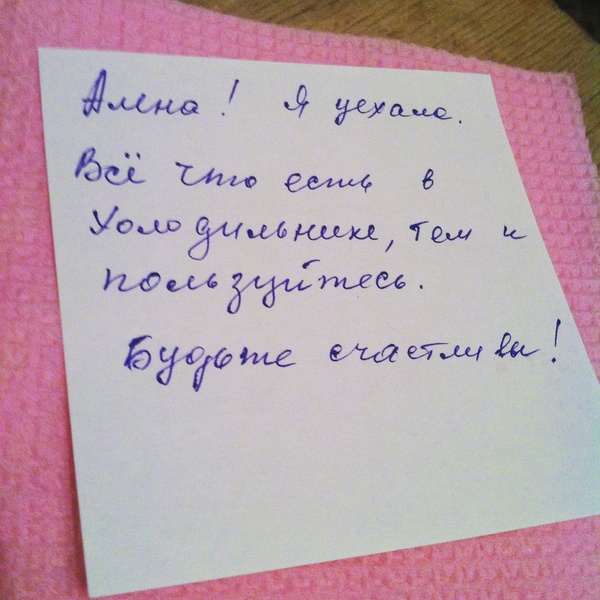 Алена! Я уехала.
Всё что есть в
холодильнике, тем и
пользуйтесь.
Будьте счастливы!